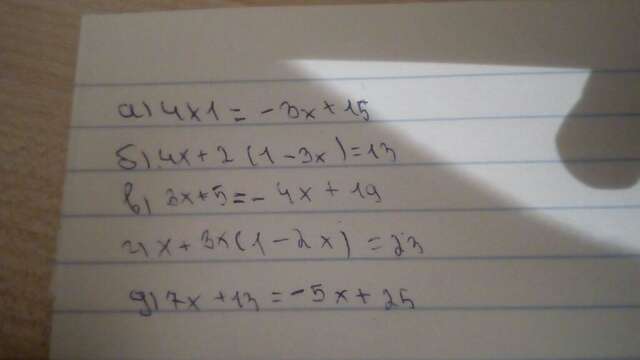 а) 4x1 = -3x + 15
б) 4x + 2 (1 - 3x) = 13
в) 3x + 5 = - 4x + 19
г) x + 3x (1 - 2x) = 23
д) 7x + 13 = -5x + 25